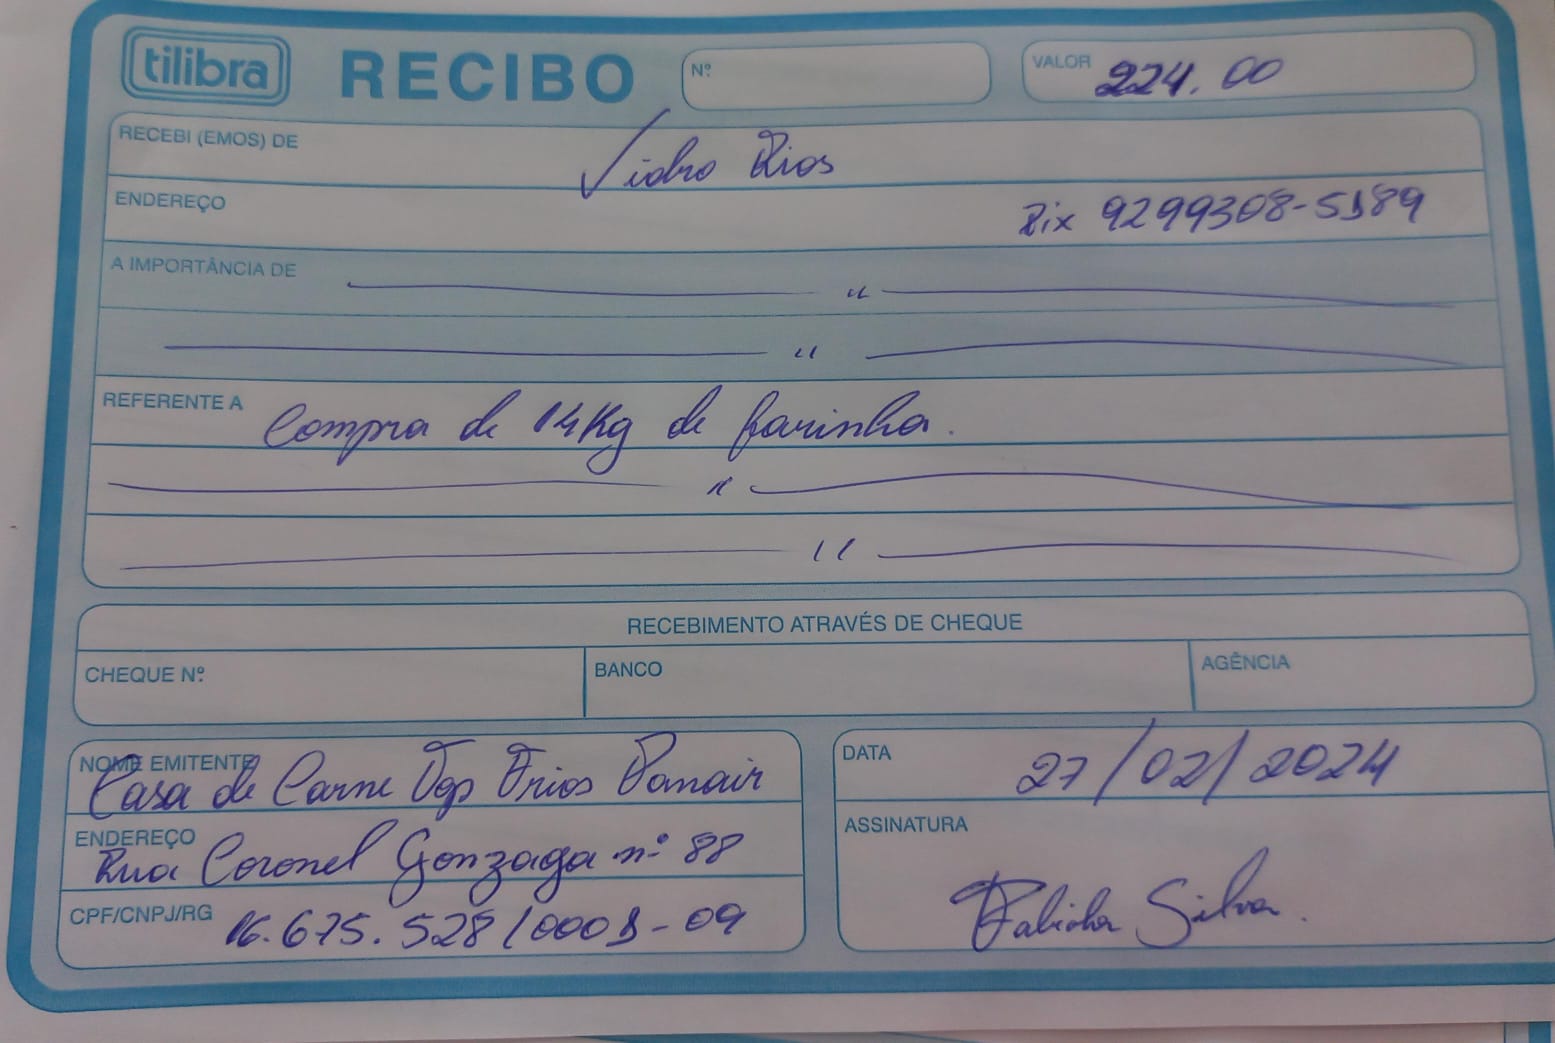 tilibra RECIBO Nº VALOR 224.00
RECEBI (EMOS) DE Vidro Rios
ENDEREÇO Pix 9299308-5189
A IMPORTÂNCIA DE ——— " ———
——— " ———
REFERENTE A Compra de 14Kg de farinha.
——— " ———
——— " ———
RECEBIMENTO ATRAVÉS DE CHEQUE
CHEQUE Nº BANCO AGÊNCIA
NOME EMITENTE Casa de Carne Frios Panair
ENDEREÇO Rua Coronel Gonzaga nº 88
CPF/CNPJ/RG 16.675.528/0001-09
DATA 27/02/2024
ASSINATURA
Silva.